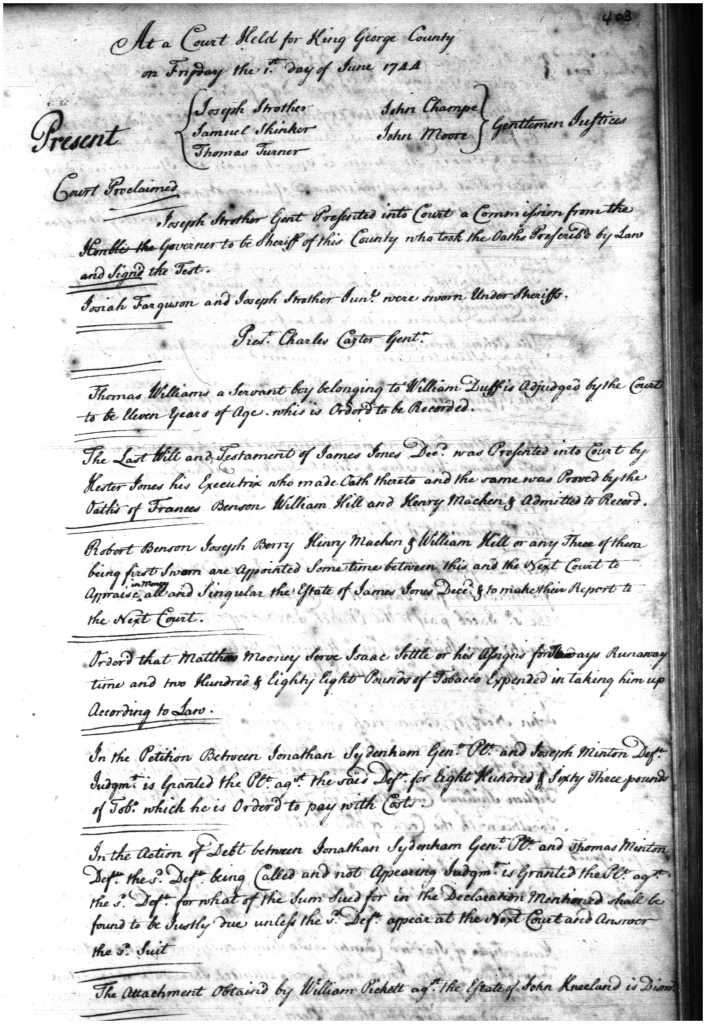 403
At a Court Held for King George County
on Fryday the 1st. day of June 1744
Present
Joseph Strother John Champe
Samuel Skinker John Moore Gentlemen Justices
Thomas Turner
Court Proclaimed
Joseph Strother Gent Presented into Court a Commission from the
Honble the Governer to be Sheriff of this County who took the Oaths Prescribd by Law
and Signd the Test.
Josiah Farguson and Joseph Strother Junr. were sworn Under Sheriffs.
Prest. Charles Carter Gentn.
Thomas Williams a Servant boy belonging to William Duff is Adjudged by the Court
to be Eleven Years of Age. whis is Orderd to be Recorded.
The Last Will and Testament of James Jones Decd. was Presented into Court by
Hester Jones his Executrix who made Oath thereto and the same was Proved by the
Oaths of Frances Benson William Hill and Henry Machen & Admitted to Record.
Robert Benson Joseph Berry Henry Machen & William Hill or any Three of them
being first Sworn are Appointed Some time between this and the Next Court to
Appraise in Money all and Singular the Estate of James Jones Decd. & to make their Report to
the Next Court.
Orderd that Matthew Mooney Serve Isaac Settle or his Assigns for days Runaway
time and two Hundred & Eighty Eight Pounds of Tobacco Expended in taking him up
According to Law.
In the Petition Between Jonathan Sydenham Gent. Plt. and Joseph Minton Deft.
Judgmt. is Granted the Plt. agst. the said Deft. for Eight Hundred & Sixty Three pounds
of Tobo. which he is Orderd to pay with Costs.
In the Action of Debt between Jonathan Sydenham Gent. Plt. and Thomas Minton
Deft. the sd. Deft. being Called and not Appearing Judgmt. is Granted the Plt. agst.
the sd. Deft. for what of the Sum Sued for in the Declaration Mentioned shall be
found to be Justly due unless the sd. Deft. appear at the Next Court and Answer
the sd. Suit
The Attachment Obtaind by William Pickett agst. the Estate of John Kneeland is Dismd